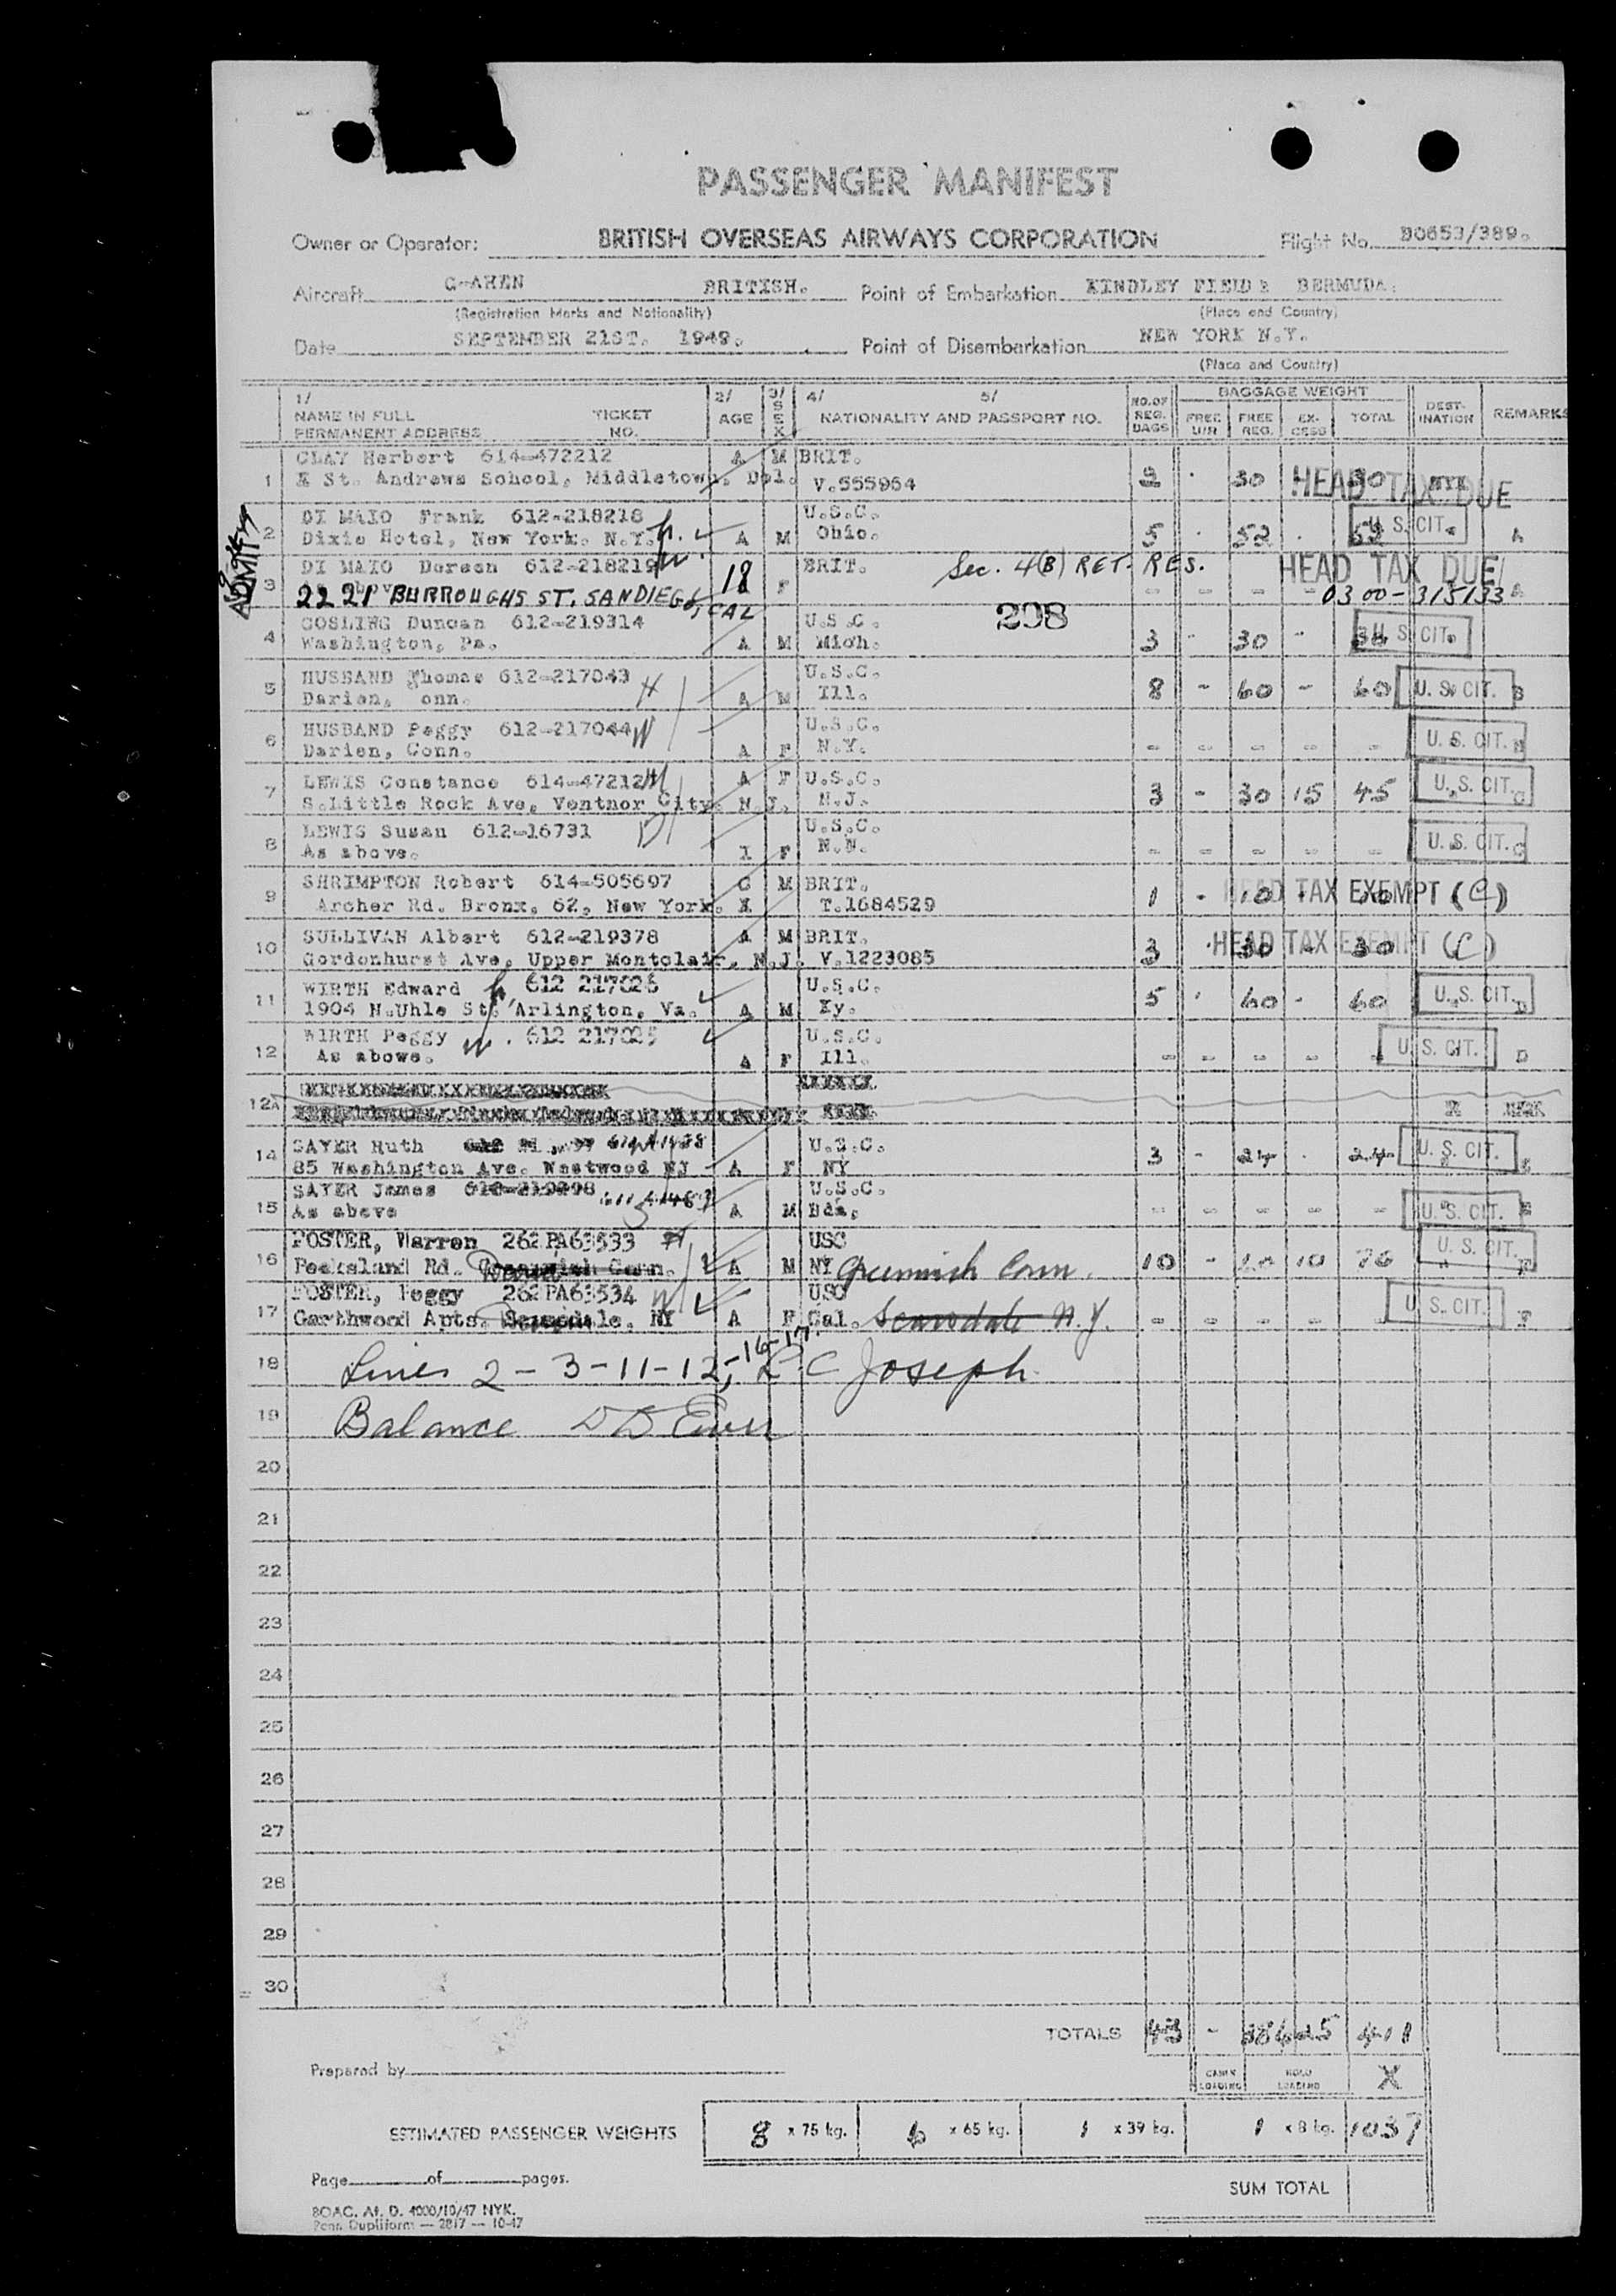 PASSENGER MANIFEST
Owner or Operator: BRITISH OVERSEAS AIRWAYS CORPORATION Flight No. B0653/389.
Aircraft G-AHEN BRITISH. Point of Embarkation KINDLEY FIELD BERMUDA.
(Registration Marks and Nationality) (Place and Country)
Date SEPTEMBER 21ST. 1949. Point of Disembarkation NEW YORK N.Y.
(Place and Country)
1/ 2/ 3/ 4/ 5/ NO. OF REG. BAGS BAGGAGE WEIGHT
NAME IN FULL TICKET AGE SEX NATIONALITY AND PASSPORT NO. FREE FREE REG. EX-CESS TOTAL DEST-INATION REMARKS
PERMANENT ADDRESS NO.
1 CLAY Herbert 614-472212 A M BRIT.
X St. Andrews School, Middletown, Del. V.555964 2 30 30 NYK HEAD TAX DUE
2 DI MAIO Frank 612-218218 U.S.C.
Dixie Hotel, New York. N.Y. h. A M Ohio. 5 52 52 U.S. CIT. A
ADMIT
3 DI MAIO Doreen 612-218219 w. 18 BRIT. Sec. 4(B) RET. RES. HEAD TAX DUE
As above 2221 BURROUGHS ST. SAN DIEGO, CAL F 0300-315133 A
4 GOSLING Duncan 612-219314 U.S.C. 298
Washington, Pa. A M Mich. 3 - 30 - 30 U.S. CIT.
5 HUSBAND Thomas 612-217043 H U.S.C.
Darien, onn. A M Ill. 8 - 60 - 60 U.S. CIT. B
6 HUSBAND Peggy 612-217044 W U.S.C.
Darien, Conn. A F N.Y. - - - - - U.S. CIT. B
7 LEWIS Constance 614-47212 A F U.S.C.
S.Little Rock Ave, Ventnor City. N.J. N.J. 3 - 30 15 45 U.S. CIT. C
8 LEWIS Susan 612-16731 U.S.C.
As above. I F N.N. - - - - - U.S. CIT. C
9 SHRIMPTON Robert 614-505697 C M BRIT.
Archer Rd. Bronx, 62, New York. X T.1684529 1 - 10 - 10 HEAD TAX EXEMPT (C)
10 SULLIVAN Albert 612-219378 A M BRIT.
Gordonhurst Ave, Upper Montclair, N.J. V.1223085 3 30 - 30 HEAD TAX EXEMPT (C)
11 WIRTH Edward h. 612 217026 U.S.C.
1904 N.Uhle St. Arlington, Va. A M Ky. 5 60 - 60 U.S. CIT. D
12 WIRTH Peggy w. 612 217025 U.S.C.
As above. A F Ill. - - - - - U.S. CIT. D
12A
14 SAYER Ruth U.S.C.
85 Washington Ave. Westwood NJ A F NY 3 - 24 24 U.S. CIT. E
15 SAYER James U.S.C.
As above A M Bda. - - - - - U.S. CIT. E
16 FOSTER, Warren 262PA63533 H USC
Pecksland Rd. Greenwich Conn. A M NY Greenwich Conn. 10 - 10 U.S. CIT. F
17 FOSTER, Peggy 262PA63534 W USC
Garthwood Apts. Scarsdale. NY A F Cal. Scarsdale N.Y. - - - - - U.S. CIT. F
18 Lines 2-3-11-12,-16-17. R.C Joseph
19 Balance
20
21
22
23
24
25
26
27
28
29
30
TOTALS 43 - 411
Prepared by CABIN LOADING HOLD LOADING X
ESTIMATED PASSENGER WEIGHTS 8 x 75 kg. 6 x 65 kg. 1 x 39 kg. 1 x 8 kg. 1037
Page of pages.
SUM TOTAL
BOAC. At. D. 4000/10/47 NYK.
Penn Dupliform — 2817 — 10-47